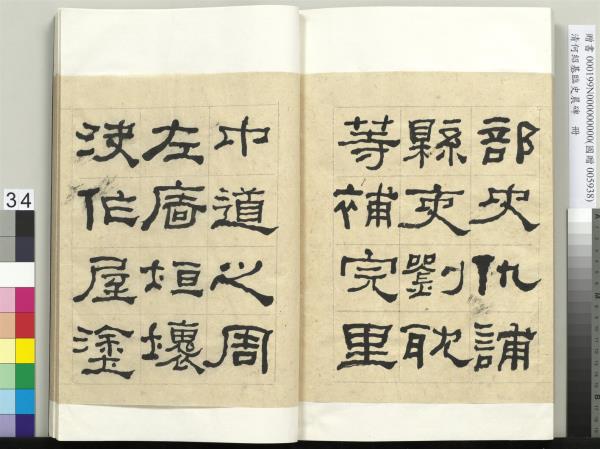 部史仇誧
縣吏劉耽
等補完里
中道之周
左廧垣壞
決作屋塗
贈書 000199N000000000(國贈 005938)
清何紹基臨史晨碑 冊
34